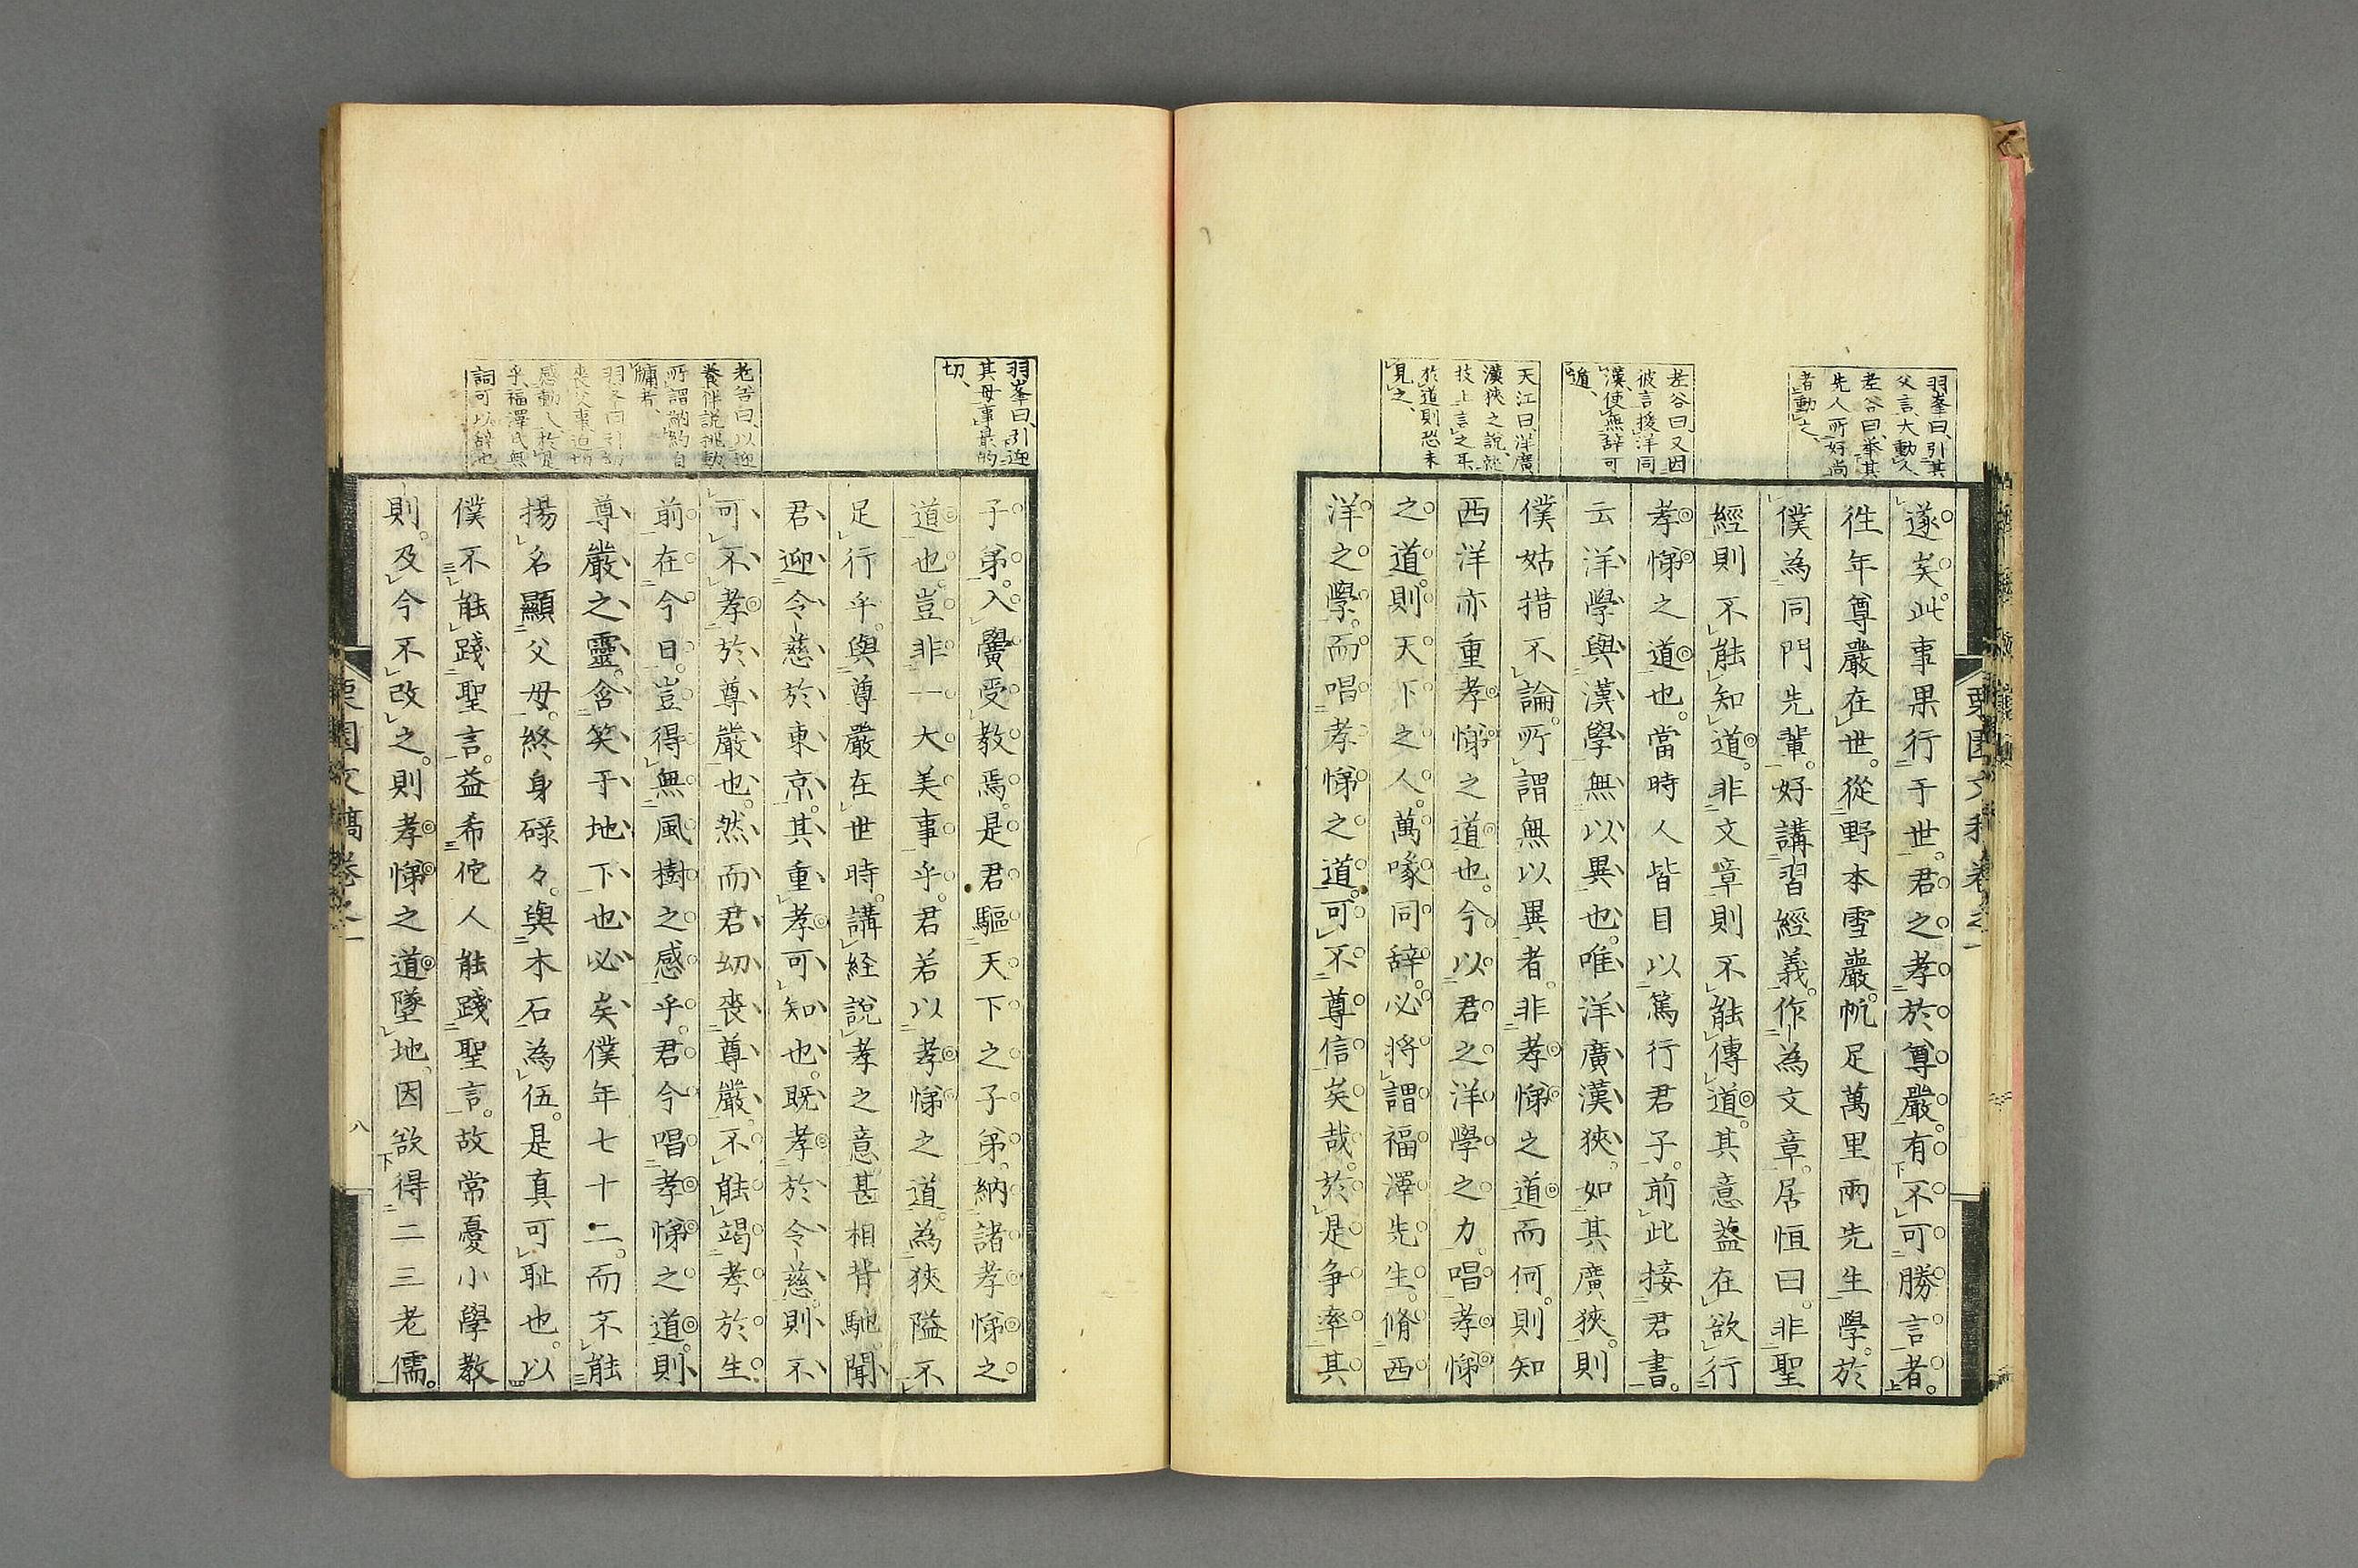 羽峯曰、引其
父言、大動人
老谷曰、舉其
先人所好尚
者動之、
老谷曰又因
彼言援洋同
漢、使無辭可
遁、
天江曰、洋廣
漢狹之說、就
技上言之耳
於道則恐未
見之、
遂矣。此事果行于世。君之孝於尊嚴。有不可勝言者。
徃年尊嚴在世。從野本雪巖。帆足萬里兩先生學。於
僕為同門先輩。好講習經義。作為文章。居恒曰。非聖
經則不能知道。非文章則不能傳道。其意蓋在欲行
孝悌之道也。當時人皆目以篤行君子。前此接君書。
云洋學與漢學無以異也。唯洋廣漢狹。如其廣狹。則
僕姑措不論。所謂無以異者。非孝悌之道而何。則知
西洋亦重孝悌之道也。今以君之洋學之力。唱孝悌
之道。則天下之人。萬喙同辞。必將謂福澤先生。脩西
洋之學。而唱孝悌之道。可不尊信矣哉。於是争率其
栗園文稿卷之一
羽峯曰、引迎
其母事、最的
切、
老谷曰、以迎
養伴說挑動
所謂納約自
牖者、
羽峯曰引幼
喪父事、迫切
感動人、於是
乎、福澤氏無
詞可以辞也
子弟。入黌受教焉。是君驅天下之子弟。納諸孝悌之
道也。豈非一大美事乎。君若以孝悌之道。為狹隘不
足行乎。與尊嚴在世時。講経說孝之意甚相背馳。聞
君迎令慈於東京。其重孝可知也。既孝於令慈。則不
可不孝於尊嚴也。然而君幼喪尊嚴。不能竭孝於生
前在今日。豈得無風樹之感乎。君今唱孝悌之道。則
尊嚴之靈。含笑于地下也必矣。僕年七十二。而不能
揚名顯父母。終身碌々。與木石為伍。是真可耻也。以
僕不能踐聖言。益希佗人能踐聖言。故常憂小學教
則。及今不改之。則孝悌之道墜地。因欲得二三老儒。
栗園文稿卷之一
八